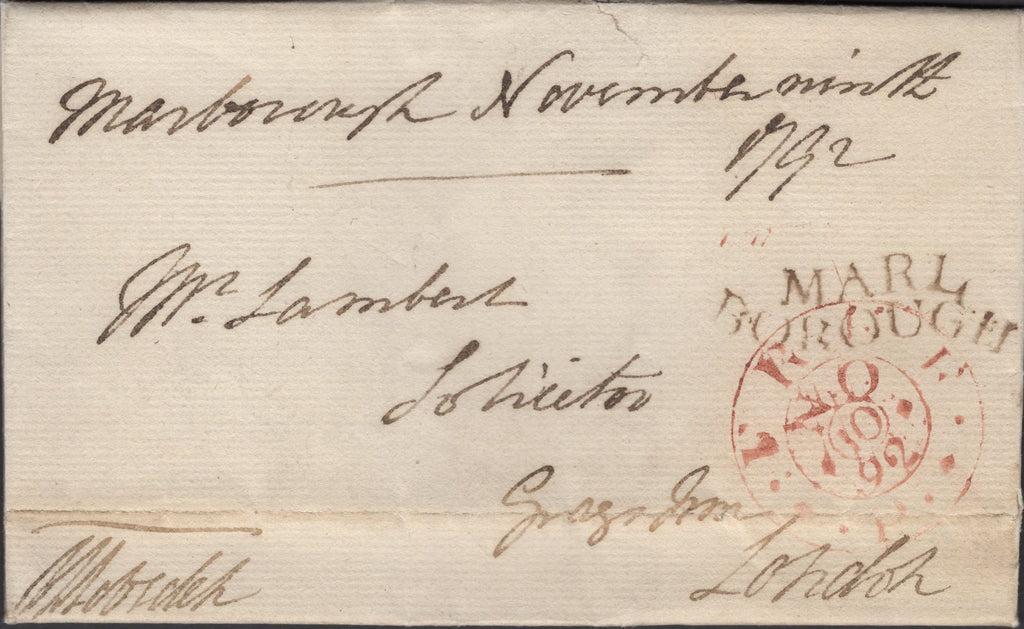 Marborough November ninth
1792
Mr. Lambert
Solicitor
Grays Inn
London
MARL
BOROUGH
FREE
NO
10
92
P